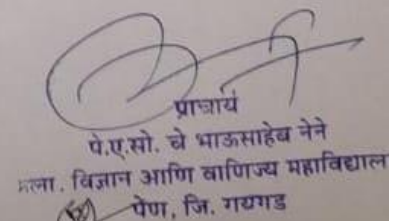 प्राचार्य
पे.ए.सो. चे भाऊसाहेब नेने
कला, विज्ञान आणि वाणिज्य महाविद्याल
पेण, जि. रायगड